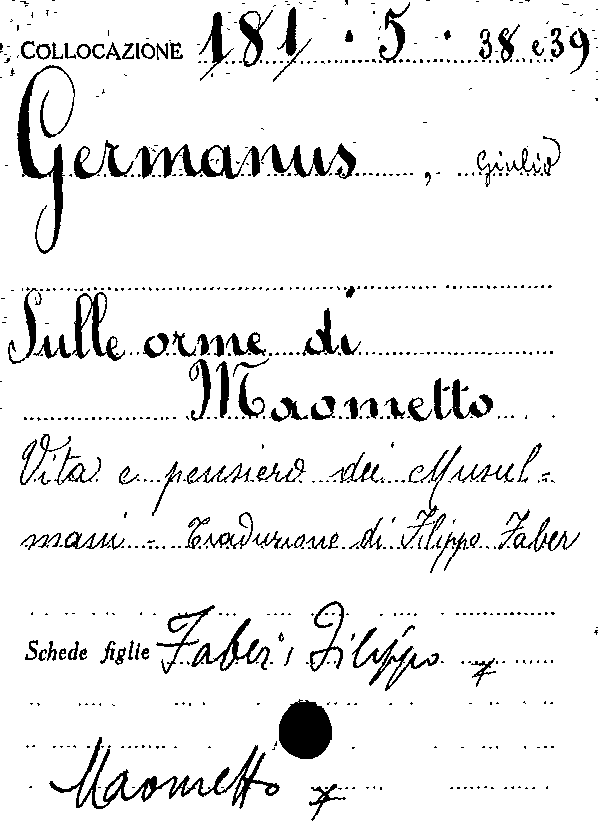 COLLOCAZIONE 181 . 5 . 38 e 39
Germanus, Giulio
Sulle orme di
Maometto
Vita e pensiero dei Musul=
mani - Traduzione di Filippo Faber
Schede figlie Faber, Filippo
Maometto